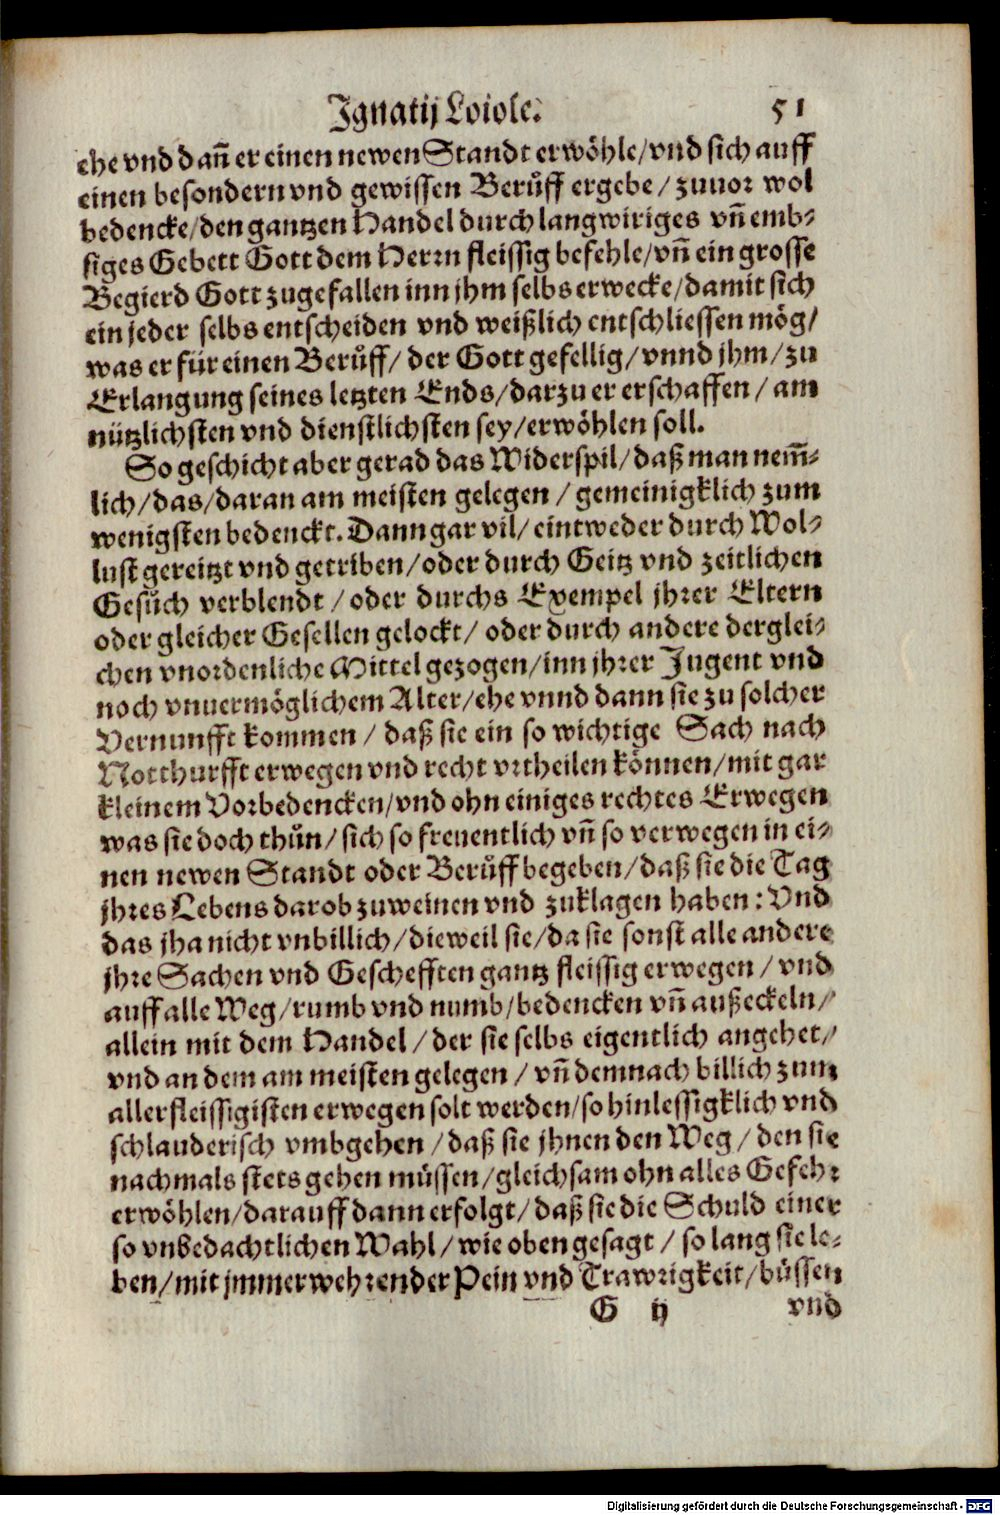 Ignatij Loiole. 51
ehe vnd dañ er einen newen Standt erwöhle/vnd sich auff
einen besondern vnd gewissen Berůff ergebe/ zuuor wol
bedencke/den gantzen Handel durch langwiriges vñ emb-
siges Gebett Gott dem Herrn fleissig befehle/vñ ein grosse
Begierd Gott zugefallen inn jhm selbs erwecke/damit sich
ein jeder selbs entscheiden vnd weißlich entschliessen mög/
was er für einen Berůff/ der Gott gefellig/ vnnd jhm/zu
Erlangung seines letzten Ends/darzu er erschaffen/ am
nützlichsten vnd dienstlichsten sey/erwöhlen soll.
So geschicht aber gerad das Widerspil/daß man nem̃-
lich/das/daran am meisten gelegen/ gemeinigklich zum
wenigsten bedenckt. Dann gar vil/ eintweder durch Wol-
lust gereitzt vnd getriben/oder durch Geitz vnd zeitlichen
Gesůch verblendt/ oder durchs Exempel jhrer Eltern
oder gleicher Gesellen gelockt/ oder durch andere derglei-
chen vnordenliche Mittel gezogen/inn jhrer Jugent vnd
noch vnuermöglichem Alter/ehe vnnd dann sie zu solcher
Vernunfft kommen/ daß sie ein so wichtige Sach nach
Notthurfft erwegen vnd recht vrtheilen können/mit gar
kleinem Vorbedencken/vnd ohn einiges rechtes Erwegen
was sie doch thůn/ sich so freuentlich vñ so verwegen in ei-
nen newen Standt oder Berůff begeben/daß sie die Tag
jhres Lebens darob zuweinen vnd zuklagen haben: Vnd
das jha nicht vnbillich/dieweil sie/da sie sonst alle andere
jhre Sachen vnd Geschefften gantz fleissig erwegen/ vnd
auff alle Weg/rumb vnd numb/bedencken vñ außeckeln/
allein mit dem Handel/ der sie selbs eigentlich angehet/
vnd an dem am meisten gelegen/ vñ demnach billich zum
allerfleissigisten erwegen solt werden/so hinlessigklich vnd
schlauderisch vmbgehen/daß sie jhnen den Weg/ den sie
nachmals stets gehen müssen/gleichsam ohn alles Gefehr
erwöhlen/darauff dann erfolgt/ daß sie die Schuld einer
so vnbedachtlichen Wahl/ wie oben gesagt/ so lang sie le-
ben/mit jmmerwehrender Pein vnd Trawrigkeit/büssen
G ij vnd
Digitalisierung gefördert durch die Deutsche Forschungsgemeinschaft - DFG